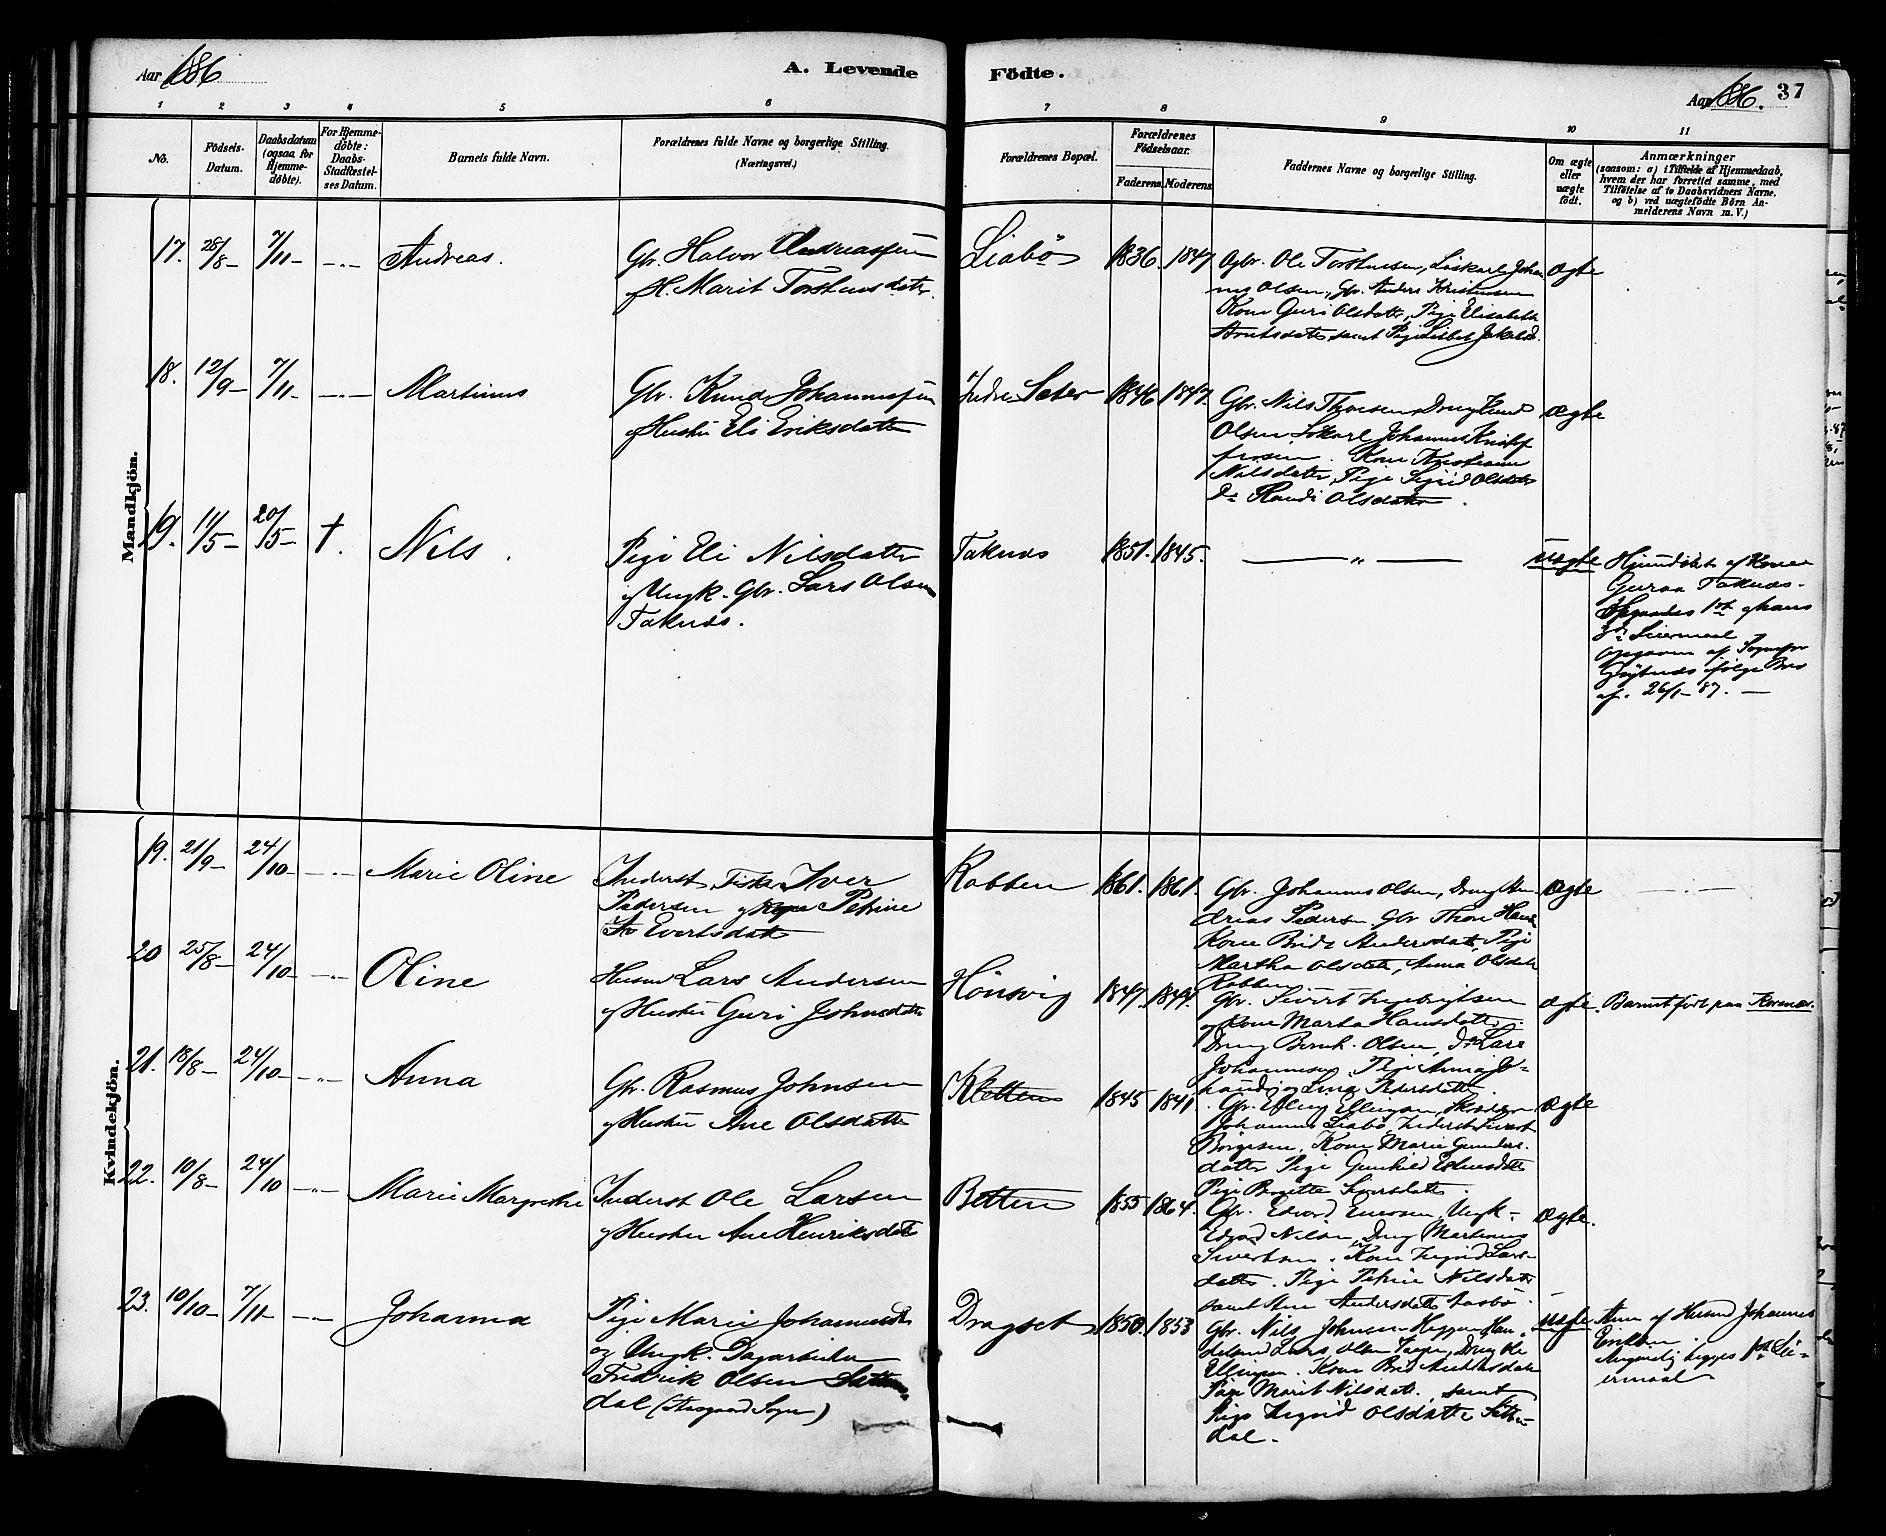 Aar 1886
A. Levende
Födte.
Aar 1886.
37
1 2 3 4 5 6 7 8 9 10 11
No.
Födsels-
Datum.
Daabsdatum
(ogsaa for
Hjemme-
döbte).
For Hjemme-
döbte:
Daabs-
Stadfæstel-
ses Datum.
Barnets fulde Navn.
Forældrenes fulde Navne og borgerlige Stilling.
(Næringsvei.)
Forældrenes Bopæl.
Forældrenes
Födselsaar.
Faderens.
Moderens.
Faddernes Navne og borgerlige Stilling.
Om ægte
eller
uægte
födt.
Anmærkninger
(saasom: a) i Tilfælde af Hjemmedaab,
hvem der har forrettet samme, med
Tilföielse af to Daabsvidners Navne.
og b) ved uægtefödte Börn An-
melderens Navn m. V.)
Mandkjön.
17. 28/8- 7/11- -"- Andreas.
Gbr. Halvor Andreassen
og H. Marit Torstensdatter.
Liabö 1836. 1847
Gbr. Ole Torstensen, Johan
Olsen, Gbr. Anders Kristensen
Kone Guri Olsdatter, Pige Elisabeth
Arntsdatter samt Pige Lisbet Jakobsd.
ægte
18. 12/9- 7/11- -"- Martinus
Gbr. Knud Johannessen
og Hustru Eli Eriksdatter
Indre Sæter 1846 1847.
Gbr. Nils Thoresen, Dreng Knud
Olsen, Johannes
Kone
Nilsdatter, Pige Sigrid Olsdatter
Do Randi Olsdatter.
ægte
19. 11/5- 20/5- †. Nils.
Pige Eli Nilsdatter
og Ungk. Gbr. Lars Olsen
Taknæs.
Taknæs 1851. 1845.
— " —
uægte
Hjemdöbt af Kone
Guroa Taknæs.
1ste hans
2den Leiermaal
Opgaven af Sognepr
ifölge Brev
af. 26/1-87. —
Kvindekjön.
19. 21/9- 24/10- -"- Marie Oline
Inderst, Fisker Iver
Pedersen og Petrine
Evertsdatter
Rabben 1861. 1861.
Gbr. Johannes Olsen, Dreng An
dreas Pedersen, Gbr Thore Hans
Kone Brit Andersdatter, Pige
Martha Olsdatter, Anna Olsdatter
Rabben
ægte
20 25/8- 24/10- -"- Oline
Husmd Lars Andersen
og Hustru Guri Johnsdatter
Hönsvig 1847. 1844.
Gbr. Sivert Ingebrigtsen
og Kone Marta Hansdatter.
Dreng Bernh. Olsen, Do Lars
Johannesen. Pige Anna Jo-
og Lina Pedersdatter.
ægte.
Barnet födt paa Korsnæs.
21. 18/8- 24/10- -"- Anna
Gbr. Rasmus Johnsen
og Hustru Ane Olsdatter
Kletten 1845 1841
Gbr. Elling Ellingsen,
Johannes Liabö, Inderst Sivert
Börgesen, Kone Marie Gunders
datter Pige Gunhild Edvardsdatter
Pige Beritte Siversdatter.
ægte
22. 10/8- 24/10 -"- Marie Margrethe
Inderst Ole Larsen
og Hustru Ane Henriksdatter
Betten 1855 1864.
Gbr. Edvard Enersen, Ungk-
Edvard Nilsen, Dreng Martinus
Sivertsen. Kone Ingrid Lars-
datter. Pige Petrine Nilsdatter
samt Ane Andersdatter Aasbö.
ægte.
23. 10/10- 7/11- -"- Johanna
Pige Marie Johannesdt
og Ungk. Dagarbeider
Fredrik Olsen Setter-
dal (Aasgaard Sogn)
Dragset 1850. 1853
Gbr. Nils Johnsen Heggem, Han-
delsmd Lars Olsen Dreng Ole
Ellingsen. Kone Brit Andersdatter
Pige Marit Nilsdatter. samt
Pige Ingrid Olsdatter Setter-
dal.
uægte
Anm. af Husmd Johannes
Eriksen.
Angivelig begges 1ste Lei-
ermaal